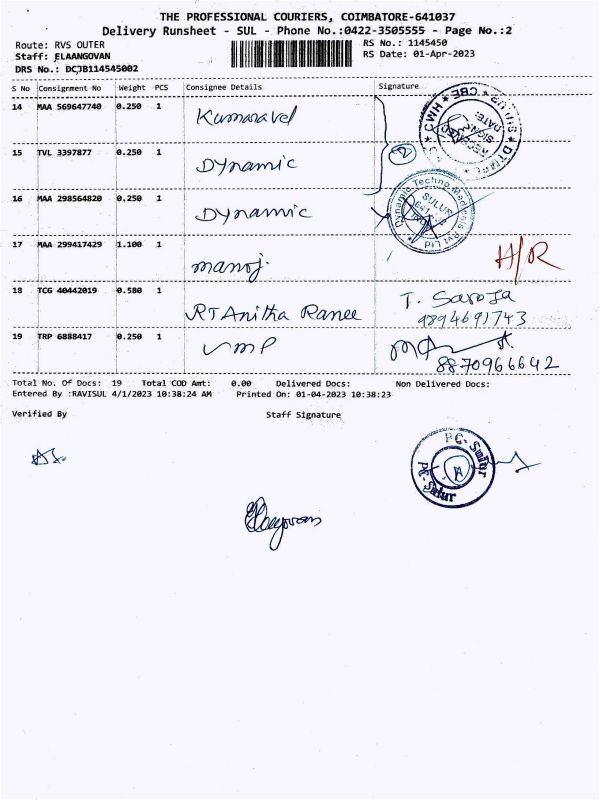 THE PROFESSIONAL COURIERS, COIMBATORE-641037
Delivery Runsheet - SUL - Phone No.:0422-3505555 - Page No.:2
Route: RVS OUTER RS No.: 1145450
Staff: ELAANGOVAN RS Date: 01-Apr-2023
DRS No.: DCJB114545002
S No Consignment No Weight PCS Consignee Details Signature
14 MAA 569647740 0.250 1 Kumaravel
15 TVL 3397877 0.250 1 Dynamic
16 MAA 298564820 0.250 1 Dynamic
Dynamic Techno Medicals Pvt Ltd
SULUR
17 MAA 299417429 1.100 1 manoj. H/R
18 TCG 40442019 0.580 1 RT Anitha Ranee T. Saroja
9894691743
19 TRP 6888417 0.250 1 VMP
8870966642
Total No. Of Docs: 19 Total COD Amt: 0.00 Delivered Docs: Non Delivered Docs:
Entered By :RAVISUL 4/1/2023 10:38:24 AM Printed On: 01-04-2023 10:38:23
Verified By Staff Signature
PC-Sulur
PC-Sulur
Elangovan